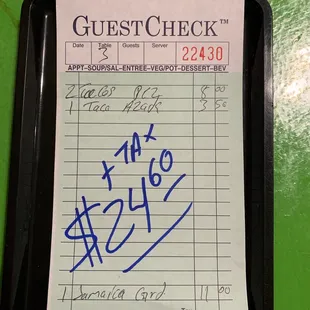 GUESTCHECK™
Date Table Guests Server
3 22430
APPT-SOUP/SAL-ENTREE-VEG/POT-DESSERT-BEV
2 8 00
1 Taco 3 50
+ TAX
$24.60
1 Jamaica Grd 11 00